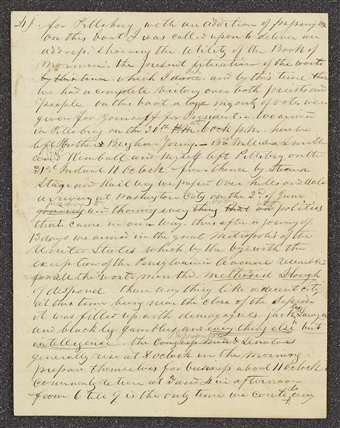 4) for Pittsburg with an addition of passengers
on this boat I was called upon to deliver an
address shewing the Utility of the Book of
Mormon. the present situation of the world
by this time which I done and by this time this
we had a complete victory over both priests and
people. on this boat a large majority of vots were
given for yourself for President. we arrived
in Pittsburg on the 30th 6 oclock p.m. here we
left Brother Brigham Young - Wm Smith
and Kimball and myself left Pittsburg on the
31st Instant 11 oclock from thence by Steam
Stage and Rail way we passed over hills and dale
arriving at Washington City on the 2d of June
and thoring every thing that in politics
that came in our way. thus after a journey of
13 days we arrived in the great Metropolis of the
United States which by the by with the
exception of the Pensylvania Avenue resembles
for all the world more the Methodist Slough
of despond than any thing like a decent city
at this time being near the close of the Session
it was filled up with demagogues. jack
and black leg Gamblers and every thing else but
intelligence - the Congressmen & Senators
generally rise at 8 oclock in the morning
prepare themselves for business about 11 oclock
commonly return at 3 and 4 in afternoon
from 6 till 9 is the only time we can to